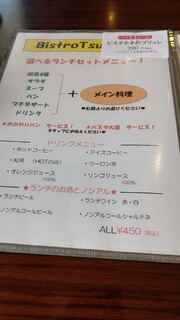 BistroTsu
ピスタチオのブリュレ
390
選べるランチセットメニュー！
前菜4種
サラダ
スープ
パン
プチデザート
ドリンク
+
メイン料理
★お好みでお選びください★
★おかわりパン サービス！ ★パスタ大盛 サービス！
スタッフにお伝えください♥
ドリンクメニュー
・ホットコーヒー
・アイスコーヒー
・紅茶 (HOTのみ)
・ウーロン茶
・オレンジジュース
100%
・リンゴジュース
100%
★ランチのお酒とノンアル★
・ランチビール
・ランチワイン 赤・白
・ノンアルコールビール
・ノンアルコールシャルドネ
ALL¥450(税込)